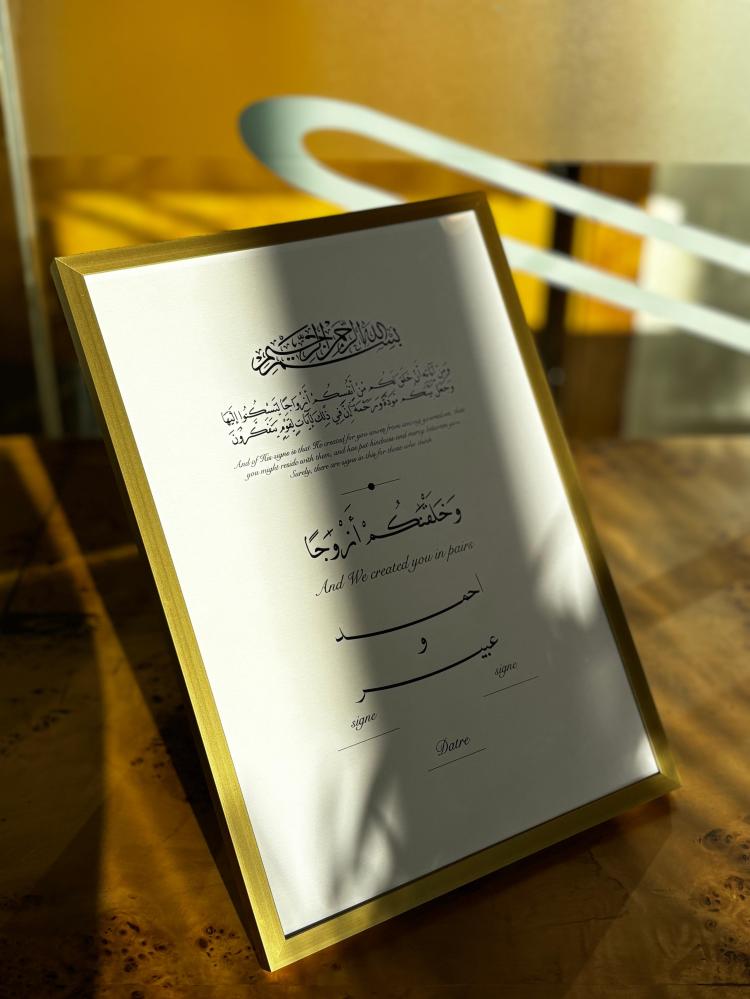 بسم الله الرحمن الرحيم
وَمِنْ آيَاتِهِ أَنْ خَلَقَ لَكُم مِّنْ أَنفُسِكُمْ أَزْوَاجًا لِّتَسْكُنُوا إِلَيْهَا
وَجَعَلَ بَيْنَكُم مَّوَدَّةً وَرَحْمَةً إِنَّ فِي ذَٰلِكَ لَآيَاتٍ لِّقَوْمٍ يَتَفَكَّرُونَ
And of His signs is that He created for you from among yourselves, that
you might reside with them, and has put kindness and mercy between you
Surely, there are signs in this for those who think
وَخَلَقْنَٰكُمْ أَزْوَٰجًا
And We created you in pairs
احمد
و
عبير
signe
signe
Datre